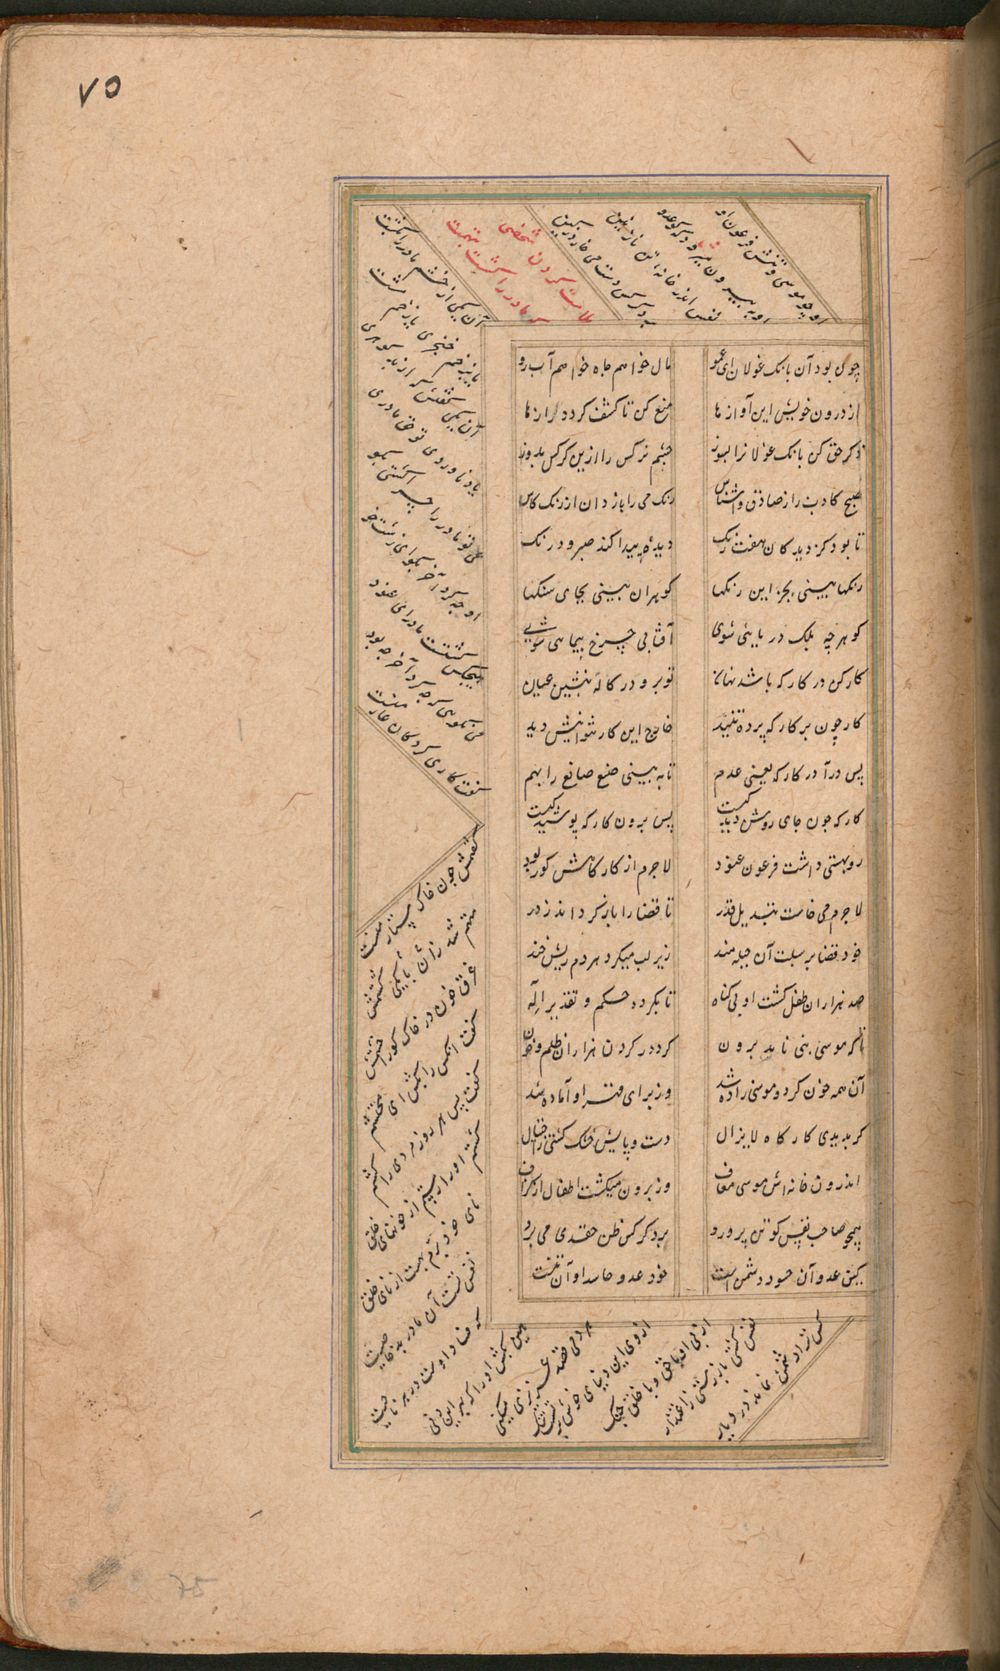 ۷۵
چون بود آن بانک غولان ای عمو
مال خواهم جاه خواهم آب رو
از درون خویش این آوازها
منع کن تا کشف کردد رازها
ذکر حق کن بانک غولانرا بسوز
چشم نرکس را ازین کرکس بدوز
صبح کاذب را ز صادق واشناس
رنک می را باز دان از رنک کاس
تا بود کز دیدکان هفت رنک
دیدهٔ پیدا کند صبر و درنک
رنکها بینی بجز این رنکها
کوهران بینی بجای سنکها
کوهر چه بلک دریایی شوی
آفتابی چرخ پیمایی شوی
کارکن در کارکه باشد نهان
تو برو در کارکه بینش عیان
کار چون بر کارکه پرده تنید
خارج این کار نتوانیش دید
پس درآ در کارکه یعنی عدم
تا به بینی صنع صانع را بهم
کارکه چون جای روشن دیدکیست
پس برون کارکه پوشیدکیست
رو بهستی داشت فرعون عنود
لاجرم از کارکاهش کور بود
لاجرم می خاست تبدیل قدر
تا قضا را باز کرداند ز در
خود قضا بر سبلت آن حیله مند
زیر لب میکرد هر دم ریش خند
صد هزاران طفل کشت او بی کناه
تا بکردد حکم و تقدیر اله
تا که موسی نبی ناید برون
کرد در کردن هزاران ظلم و خون
آن همه خون کرد و موسی زاده شد
وز برای قهر او آماده شد
کر بدیدی کارکاه لایزال
دست و پایش خشک کشتی ز احتیال
اندرون خانه اش موسی معاف
وز برون میکشت اطفال از کزاف
همچو صاحب نفس کو تن پرورد
بر دکر کس ظن حقدی می برد
کین عدو و آن حسود و دشمن است
خود عدو و حاسد او آن تنست
او چو موسی و تنش فرعون او
او به بیرون میدود که کو عدو
نفس اندر خانه تن نازنین
بر دکر کس دست می خاید بکین
ملامت کردن شخصی
که مادر را کشت بتهمت
آن یکی از خشم مادر را بکشت
با بزخم خنجری یا زخم مشت
آن یکی کفتش که از بد کوهری
یاد ناوردی تو حق مادری
هی تو مادر را چرا کشتی بکو
او چه کرد آخر بکو ای زشت خو
هیچکس کشتست مادر ای عنود
می نکویی که چه کرد آخر چه بود
کفت کاری کرد کان عار ویست
کشتمش چون خاک ستار ویست
متهم شد با یکی زان کشتمش
غرق خون در خاک کور آغشتمش
کفت آنکس را بکش ای محتشم
کفت پس هر روز مردی را کشم
کشتم او را رستم از خونهای خلق
نای خود برم بهست از نای خلق
نفس تست آن مادر بد خاصیت
که فساد اوست در هر ناحیت
هین بکش او را که بهر این دنی
هر دمی قصد عزیزی میکنی
از وی این دنیای خوش بر تست تنک
از پی او با حق و با خلق جنک
نفس کشتی باز رستی ز اعتذار
کس ترا دشمن نماند در دیار
75